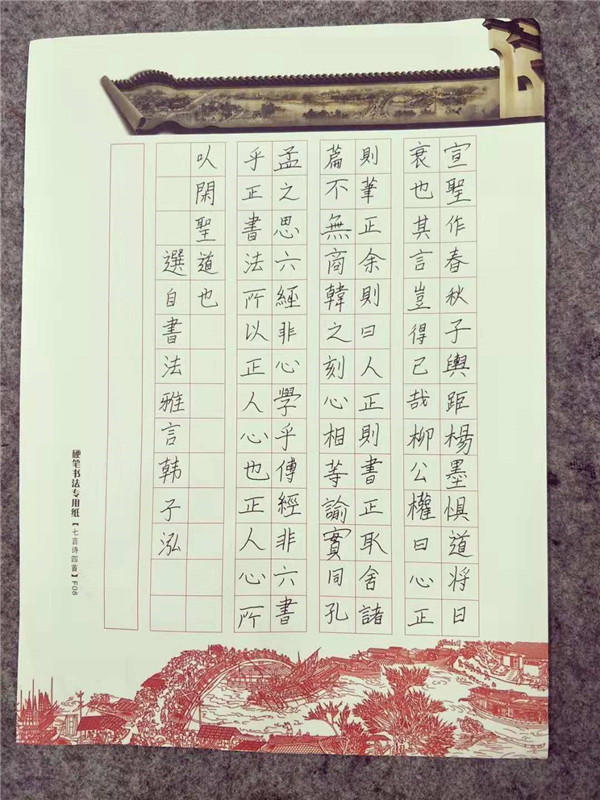 宣聖作春秋子輿距楊墨惧道将日
衰也其言豈得已哉柳公權曰心正
則筆正余則曰人正則書正取舍諸
篇不無商韓之刻心相等諭實同孔
孟之思六經非心學乎傳經非六書
乎正書法所以正人心也正人心所
以閑聖道也
選自書法雅言韩子泓
硬笔书法专用纸【七言诗四首】F08